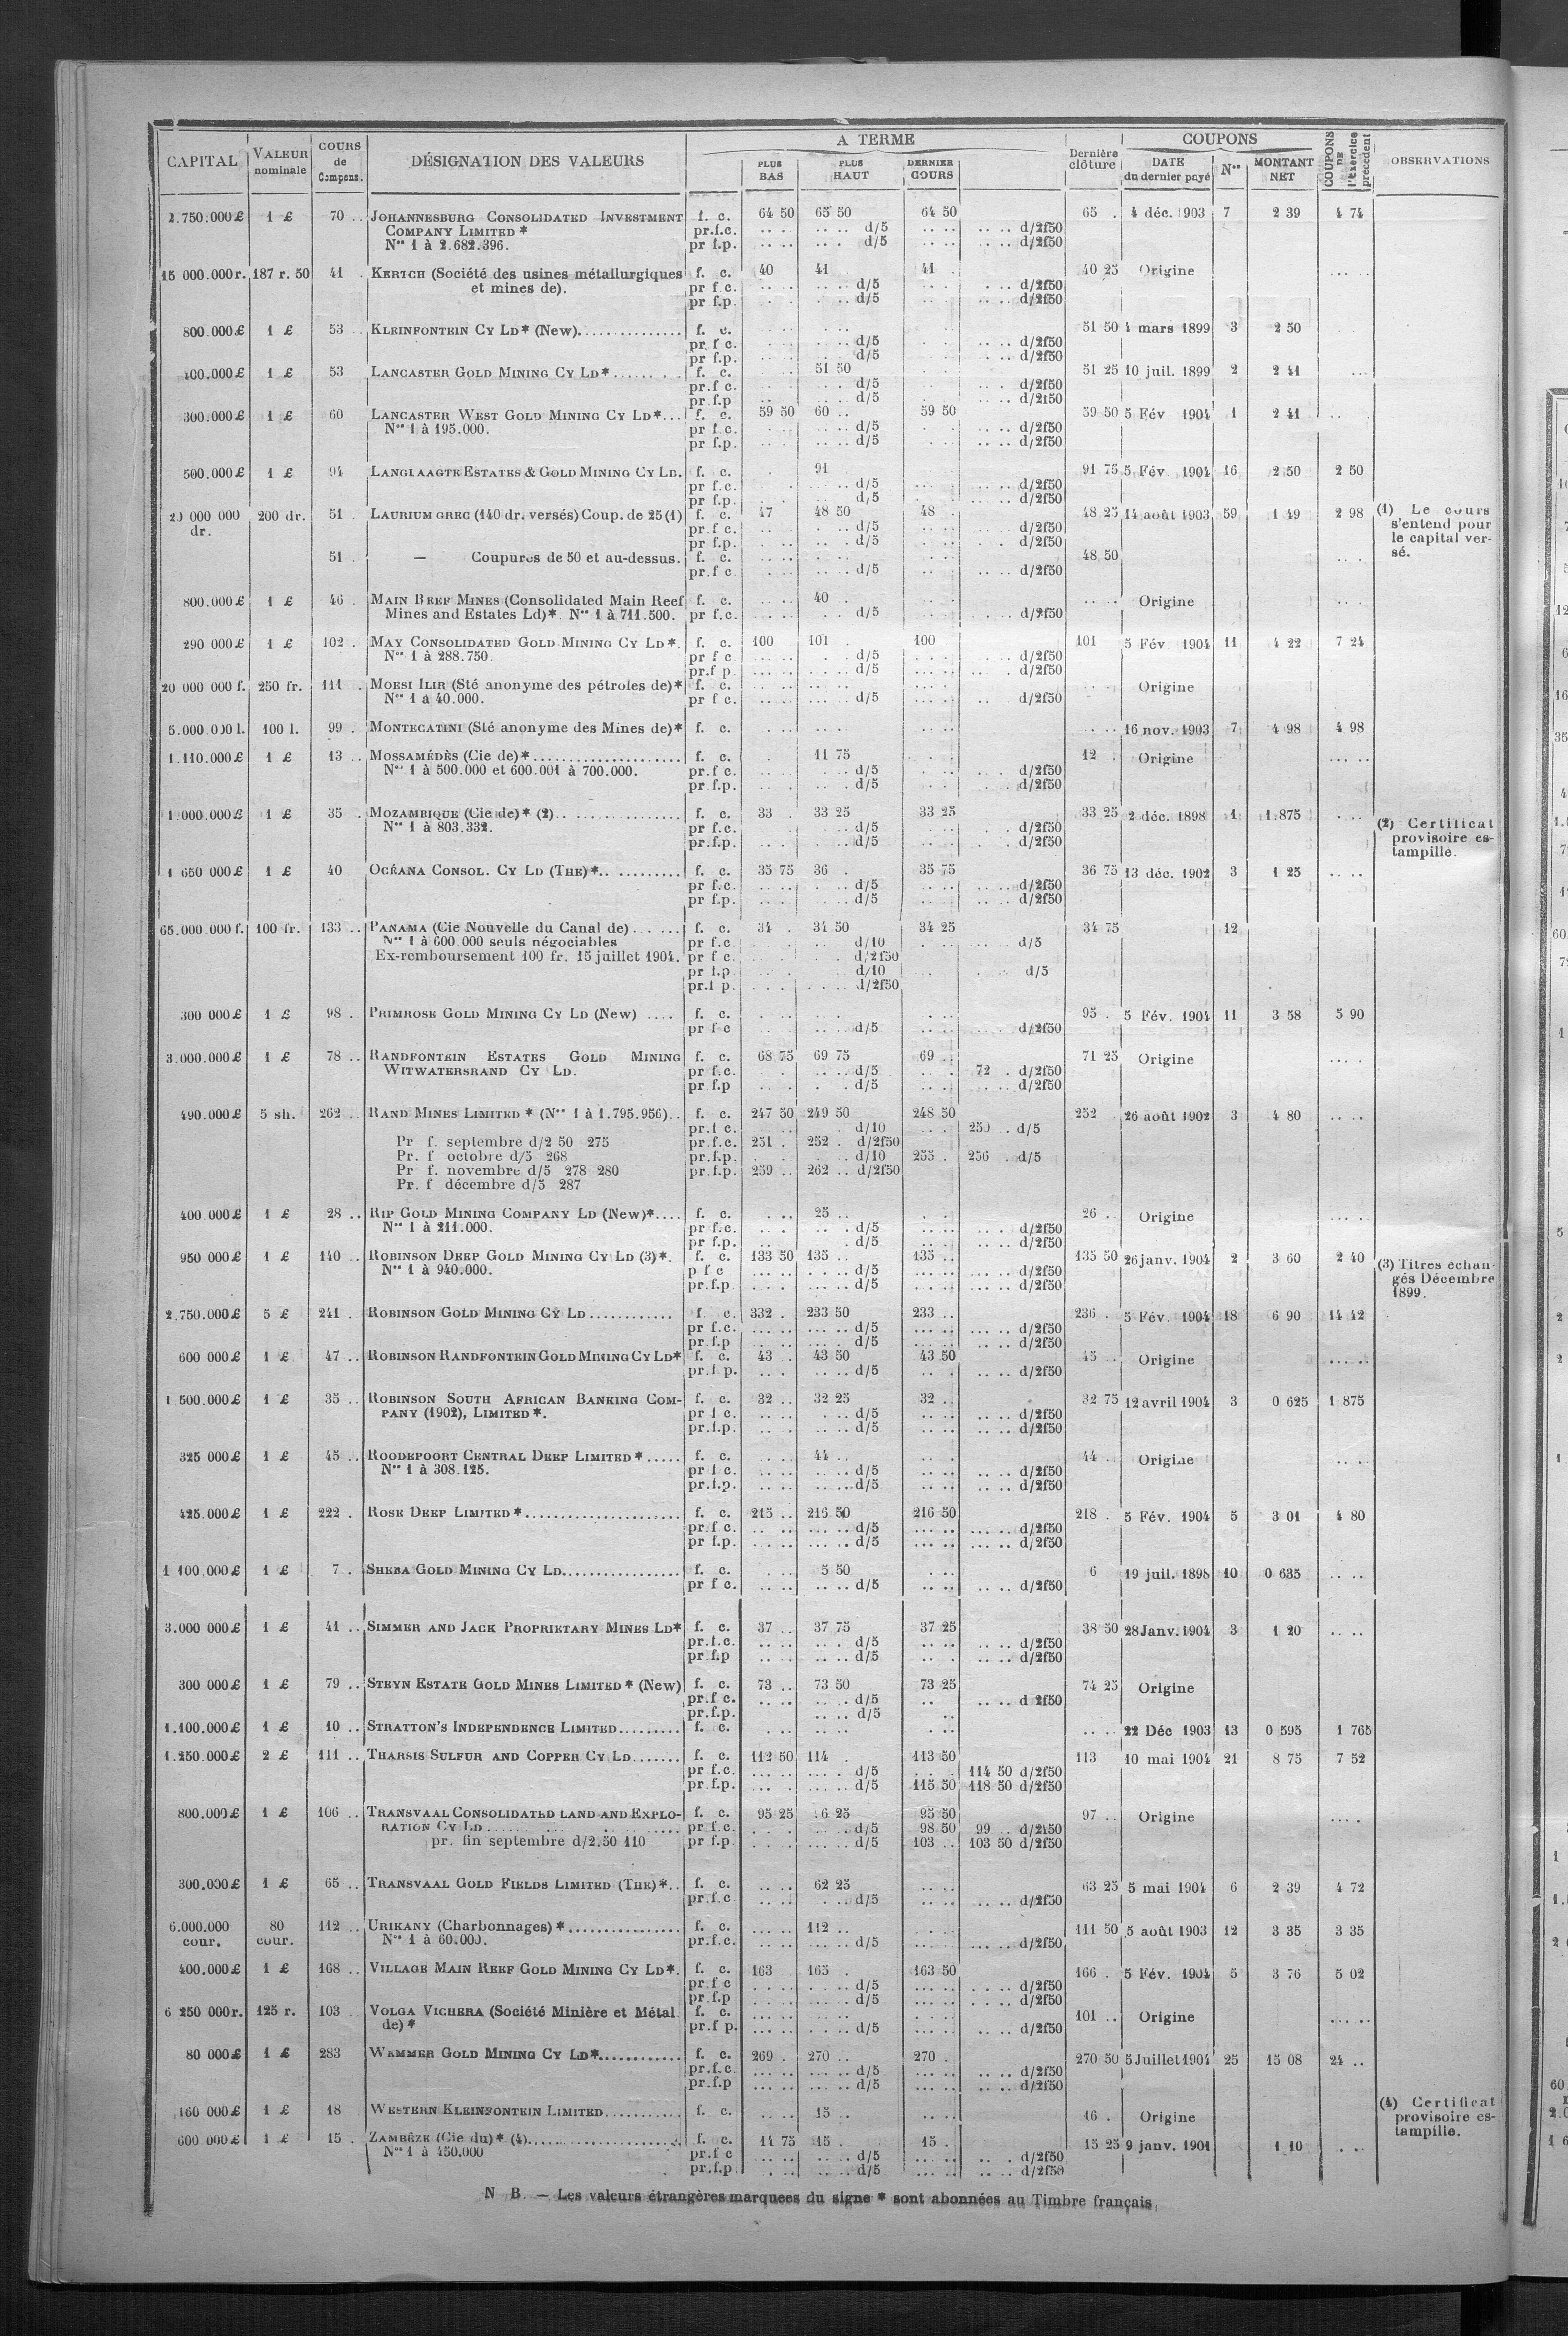 CAPITAL VALEUR nominale COURS de Compens. DÉSIGNATION DES VALEURS A TERME PLUS BAS PLUS HAUT DERNIER COURS Dernière clôture COUPONS DATE du dernier payé Nos MONTANT NET COUPONS DE l'Exercice précédent OBSERVATIONS
2.750.000£ 1 £ 70 .. JOHANNESBURG CONSOLIDATED INVESTMENT f. c. 64 50 65 50 64 50 65 . 4 déc. 1903 7 2 39 4 74
COMPANY LIMITED * pr.f.c. d/5 d/2f50
Nos 1 à 2.682.396. pr f.p. d/5 d/2f50
15 000.000r. 187 r. 50 41 . KERTCH (Société des usines métallurgiques f. c. 40 41 41 . 40 25 Origine
et mines de). pr f c. d/5 d/2f50
pr f.p. d/5 d/2f50
800.000£ 1 £ 53 .. KLEINFONTEIN CY LD* (New) f. c. 51 50 4 mars 1899 3 2 50
pr. f c. d/5 d/2f50
pr f.p. d/5 d/2f50
400.000£ 1 £ 53 LANCASTER GOLD MINING CY LD* f. c. 51 50 51 25 10 juil. 1899 2 2 41
pr.f c. d/5 d/2f50
pr.f.p d/5 d/2f50
300.000£ 1 £ 60 LANCASTER WEST GOLD MINING CY LD* f. c. 59 50 60 .. 59 50 59 50 5 Fév 1904 1 2 41
Nos 1 à 195.000. pr f.c. d/5 d/2f50
pr f.p. d/5 d/2f50
500.000£ 1 £ 94 LANGLAAGTE ESTATES & GOLD MINING CY LD. f. c. 91 91 75 5 Fév 1904 16 2 50 2 50
pr f.c. d/5 d/2f50
pr f.p. d/5 d/2f50
20 000 000 dr. 200 dr. 51 LAURIUM GREC (140 dr. versés) Coup. de 25 (1) f. c. 47 48 50 48 . 48 25 14 août 1903 59 1 49 2 98 (1) Le cours s'entend pour le capital versé.
pr.f c. d/5 d/2f50
pr f.p. d/5 d/2f50
51 . — Coupures de 50 et au-dessus. f. c. 48 50
pr.f c. d/5 d/2f50
800.000£ 1 £ 46 . MAIN REEF MINES (Consolidated Main Reef f. c. 40 . Origine
Mines and Estates Ld)* Nos 1 à 711.500. pr f.c. d/5 d/2f50
290 000£ 1 £ 102 . MAY CONSOLIDATED GOLD MINING CY LD* f. c. 100 101 . 100 101 5 Fév 1904 11 4 22 7 24
Nos 1 à 288.750. pr f c d/5 d/2f50
pr.f p d/5 d/2f50
20 000 000 f. 250 fr. 111 . MOESI ILIR (Sté anonyme des pétroles de)* f. c. Origine
Nos 1 à 40.000. pr f c. d/5 d/2f50
5.000.000 l. 100 l. 99 . MONTECATINI (Sté anonyme des Mines de)* f. c. 16 nov. 1903 7 4 98 4 98
1.110.000£ 1 £ 13 .. MOSSAMÉDÈS (Cie de)* f. c. 11 75 12 . Origine
Nos 1 à 500.000 et 600.001 à 700.000. pr.f c. d/5 d/2f50
pr f.p. d/5 d/2f50
1.000.000£ 1 £ 35 . MOZAMBIQUE (Cie de)* (2) f. c. 33 . 33 25 33 25 33 25 2 déc. 1898 1 1.875 (2) Certificat provisoire estampillé.
Nos 1 à 803.332. pr f.c. d/5 d/2f50
pr.f.p. d/5 d/2f50
1 650 000£ 1 £ 40 OCÉANA CONSOL. CY LD (THE)* f. c. 35 75 36 . 35 75 36 75 13 déc. 1902 3 1 25
pr f.c. d/5 d/2f50
pr f.p. d/5 d/2f50
65.000.000 f. 100 fr. 133 .. PANAMA (Cie Nouvelle du Canal de) f. c. 34 . 34 50 34 25 34 75 12
Nos 1 à 600.000 seuls négociables pr f.c d/10 d/5
Ex-remboursement 100 fr. 15 juillet 1904. pr f c. d/2f50
pr f.p d/10 d/5
pr.f p. d/2f50
300 000£ 1 £ 98 .. PRIMROSE GOLD MINING CY LD (New) f. c. 95 . 5 Fév. 1904 11 3 58 5 90
pr f c d/5 d/2f50
3.000.000£ 1 £ 78 .. RANDFONTEIN ESTATES GOLD MINING f. c. 68 75 69 75 69 .. 71 25 Origine
WITWATERSRAND CY LD. pr f.c. d/5 72 . d/2f50
pr f.p d/5 d/2f50
490.000£ 5 sh. 262 .. RAND MINES LIMITED * (Nos 1 à 1.795.956) f. c. 247 50 249 50 248 50 252 26 août 1902 3 4 80
pr.f c. d/10 250 . d/5
Pr f. septembre d/2 50 275 pr.f.c. 251 . 252 . d/2f50
Pr. f octobre d/5 268 pr.f.p. d/10 255 . 256 . d/5
Pr f. novembre d/5 278 280 pr.f.p. 259 .. 262 .. d/2f50
Pr. f décembre d/5 287
400 000£ 1 £ 28 .. RIP GOLD MINING COMPANY LD (New)* f. c. 25 .. 26 .. Origine
Nos 1 à 211.000. pr f.c. d/5 d/2f50
pr f.p. d/5 d/2f50
950 000£ 1 £ 140 .. ROBINSON DEEP GOLD MINING CY LD (3)* f. c. 133 50 135 .. 135 .. 135 50 26 janv. 1904 2 3 60 2 40 (3) Titres échangés Décembre 1899.
Nos 1 à 940.000. p f c d/5 d/2f50
pr.f.p d/5 d/2f50
2.750.000£ 5 £ 241 . ROBINSON GOLD MINING CY LD f. c. 332 . 233 50 233 .. 236 . 5 Fév. 1904 18 6 90 14 42
pr f.c. d/5 d/2f50
pr.f.p d/5 d/2f50
600 000£ 1 £ 47 .. ROBINSON RANDFONTEIN GOLD MINING CY LD* f. c. 43 .. 43 50 43 50 45 .. Origine
pr.f p. d/5 d/2f50
1 500.000£ 1 £ 35 .. ROBINSON SOUTH AFRICAN BANKING COM- f. c. 32 .. 32 25 32 .. 32 75 12 avril 1904 3 0 625 1 875
PANY (1902), LIMITED *. pr f c. d/5 d/2f50
pr.f.p. d/5 d/2f50
325 000£ 1 £ 45 .. ROODEPOORT CENTRAL DEEP LIMITED * f. c. 44 .. 44 .. Origine
Nos 1 à 308.125. pr f c. d/5 d/2f50
pr.f.p. d/5 d/2f50
425.000£ 1 £ 222 . ROSE DEEP LIMITED * f. c. 215 .. 216 50 216 50 218 . 5 Fév. 1904 5 3 01 4 80
pr.f c. d/5 d/2f50
pr f.p. d/5 d/2f50
1 100.000£ 1 £ 7 . SHEBA GOLD MINING CY LD f. c. 5 50 6 19 juil. 1898 10 0 635
pr f c. d/5 d/2f50
3.000 000£ 1 £ 41 .. SIMMER AND JACK PROPRIETARY MINES LD* f. c. 37 .. 37 75 37 25 38 50 28 Janv. 1904 3 1 20
pr.f.c. d/5 d/2f50
pr f.p d/5 d/2f50
300 000£ 1 £ 79 .. STEYN ESTATE GOLD MINES LIMITED * (New) f. c. 73 .. 73 50 73 25 74 25 Origine
pr.f c. d/5 d 2f50
pr.f.p. d/5
1.100.000£ 1 £ 10 .. STRATTON'S INDEPENDENCE LIMITED f. c. 22 Déc 1903 13 0 595 1 765
1.250.000£ 2 £ 111 .. THARSIS SULFUR AND COPPER CY LD f. c. 112 50 114 . 113 50 113 10 mai 1904 21 8 75 7 52
pr f.c. d/5 114 50 d/2f50
pr.f.p. d/5 115 50 118 50 d/2f50
800.000£ 1 £ 106 .. TRANSVAAL CONSOLIDATED LAND AND EXPLO- f. c. 95 25 6 25 95 50 97 .. Origine
RATION CY LD pr f.c. d/5 98 50 99 .. d/2f50
pr. fin septembre d/2.50 110 pr f.p d/5 103 .. 103 50 d/2f50
300.000£ 1 £ 65 .. TRANSVAAL GOLD FIELDS LIMITED (THE)* f. c. 62 25 63 25 5 mai 1904 6 2 39 4 72
pr.f.c d/5 d/2f50
6.000.000 cour. 80 cour. 112 .. URIKANY (Charbonnages) * f. c. 112 .. 111 50 5 août 1903 12 3 35 3 35
Nos 1 à 60.000. pr.f.c. d/5 d/2f50
400.000£ 1 £ 168 .. VILLAGE MAIN REEF GOLD MINING CY LD* f. c. 163 165 . 163 50 166 . 5 Fév. 1904 5 3 76 5 02
pr.f c d/5 d/2f50
pr f.p d/5 d/2f50
6 250 000r. 125 r. 103 VOLGA VICHERA (Société Minière et Métal f. c. 101 .. Origine
de) * pr.f p. d/5 d/2f50
80 000£ 1 £ 283 WEMMER GOLD MINING CY LD* f. c. 269 . 270 .. 270 . 270 50 5 Juillet 1904 25 15 08 24 ..
pr.f.c d/5 d/2f50
pr.f.p d/5 d/2f50
160 000£ 1 £ 18 WESTERN KLEINFONTEIN LIMITED f. c. 15 .. 16 . Origine (4) Certificat provisoire estampille.
600 000£ 1 £ 15 . ZAMBÈZE (Cie du)* (4) f. c. 14 75 15 . 15 . 15 25 9 janv. 1901 1 10
Nos 1 à 450.000 pr.f c d/5 d/2f50
pr.f.p d/5 d/2f50
N B. — Les valeurs étrangères marquees du signe * sont abonnées au Timbre français